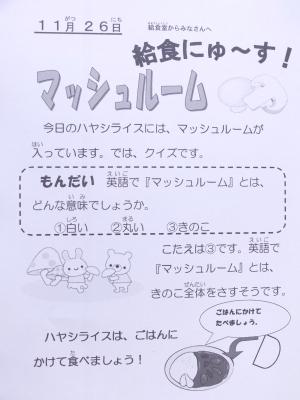 11月26日
給食室からみなさんへ
給食にゅ~す!
マッシュルーム
今日のハヤシライスには、マッシュルームが
入っています。では、クイズです。
もんだい 英語で『マッシュルーム』とは、
どんな意味でしょうか。
①白い ②丸い ③きのこ
こたえは③です。英語で
『マッシュルーム』とは、
きのこ全体をさすそうです。
ごはんにかけて
たべましょう。
ハヤシライスは、ごはんに
かけて食べましょう!